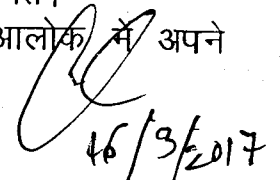 आलोक में अपने
16/9/2017